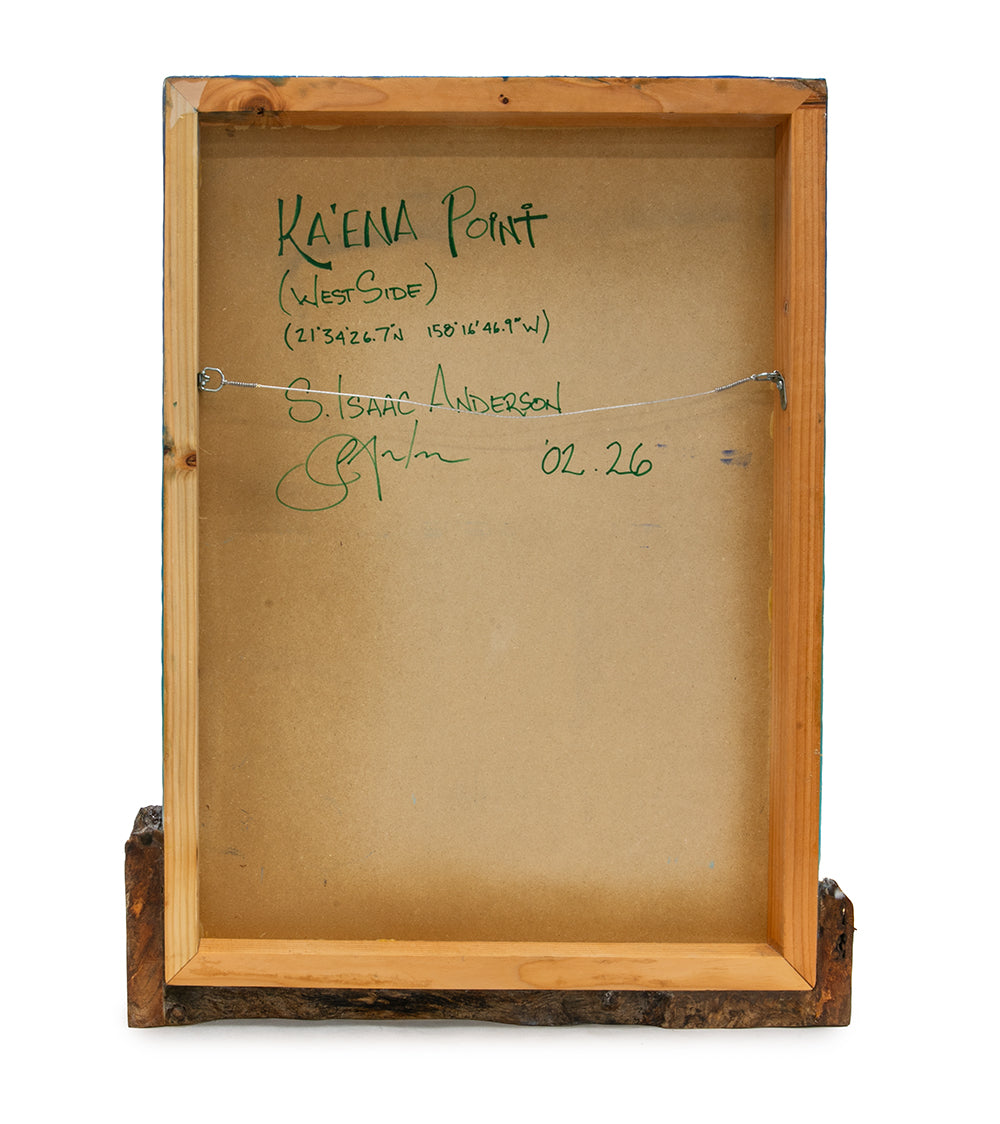 KA'ENA POINT
(WEST SIDE)
(21°34'26.7"N 158°16'46.9"W)
S. ISAAC ANDERSON
'02.26